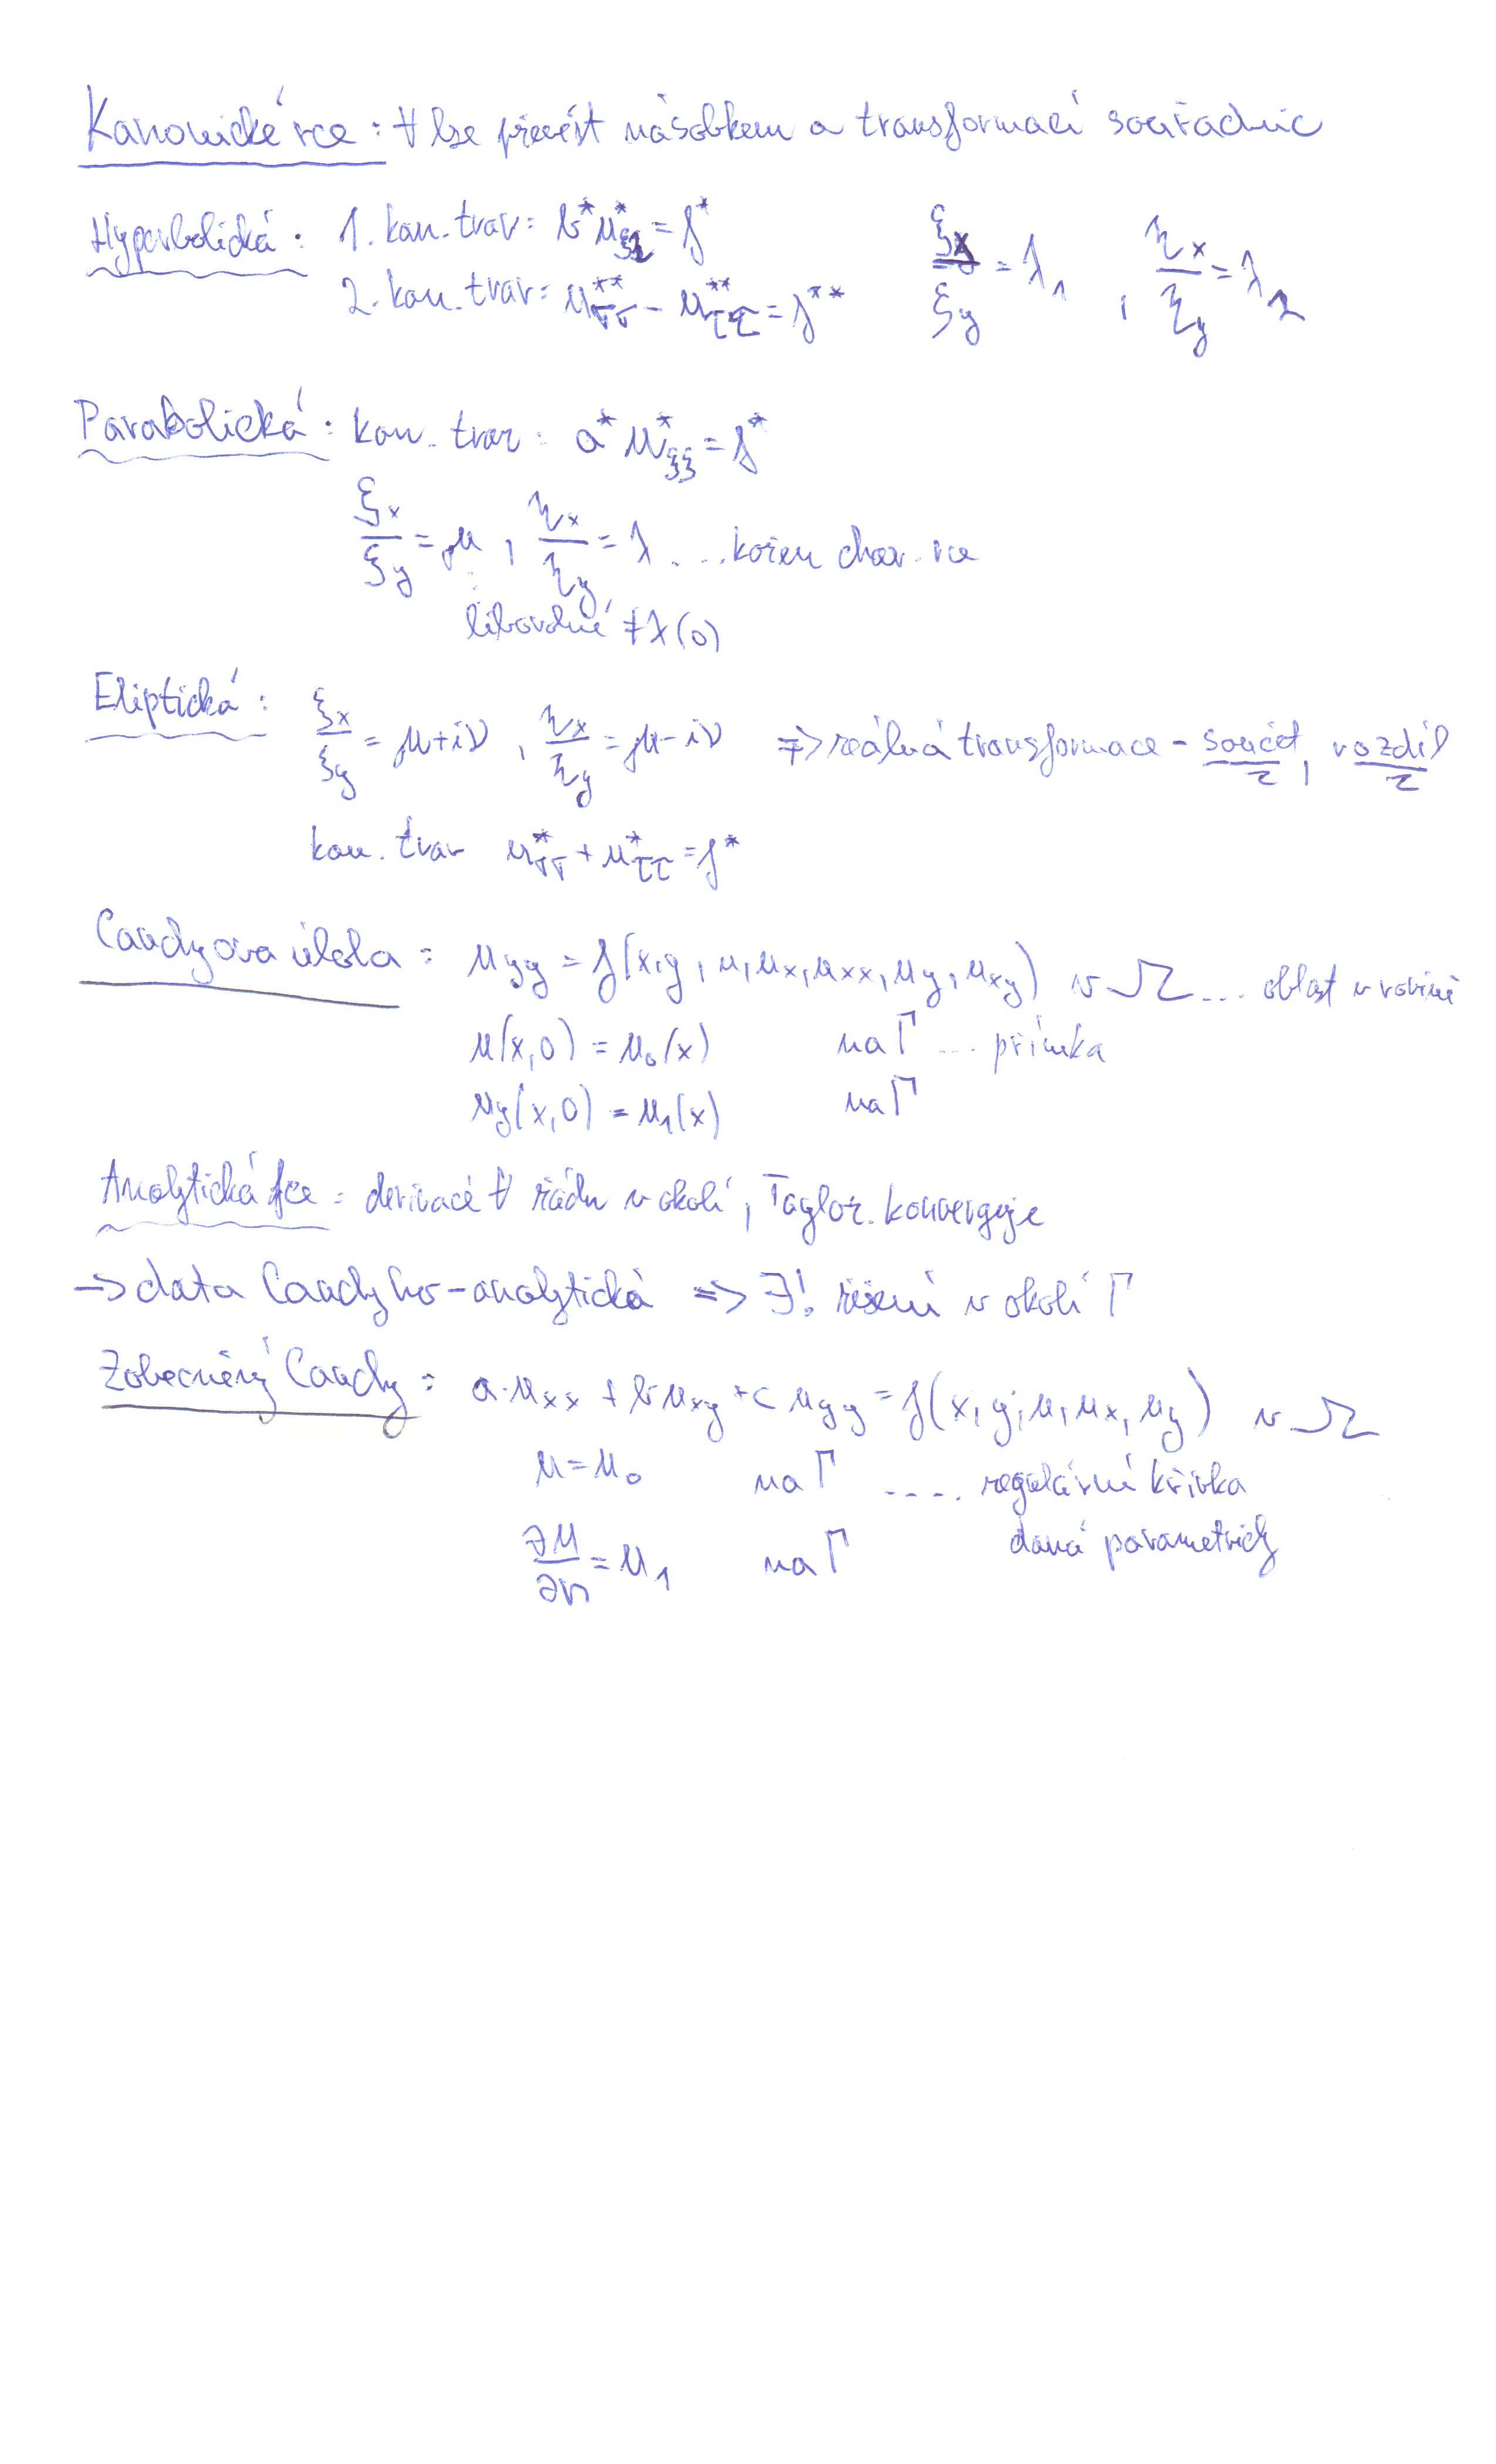 Kanonické rce : ∀ lze převést násobkem a transformací souřadnic
Hyperbolická : 1. kan. tvar : b* u*_ξη = f*    ξx/ξy = λ1 , ηx/ηy = λ2
2. kan. tvar : u**_σσ - u**_ττ = f**
Parabolická : kan. tvar : a* u*_ξξ = f*
ξx/ξy = μ , ηx/ηy = λ ... kořen char. rce
libovolné ≠ λ (0)
Eliptická : ξx/ξy = μ+iν , ηx/ηy = μ-iν ⇒ reálná transformace - součet/2 , rozdíl/2
kan. tvar u*_σσ + u*_ττ = f*
Cauchyova úloha : u_yy = f(x,y,u,u_x,u_xx,u_y,u_xy) v Ω ... oblast v rovině
u(x,0) = u_0(x) na Γ ... přímka
u_y(x,0) = u_1(x) na Γ
Analytická fce : derivace ∀ řádu v okolí, Taylor. konverguje
→ data Cauchyho - analytická ⇒ ∃! řešení v okolí Γ
Zobecněný Cauchy : a·u_xx + b u_xy + c u_yy = f(x,y,u,u_x,u_y) v Ω
u = u_0 na Γ .... regulární křivka
∂u/∂n = u_1 na Γ daná parametricky